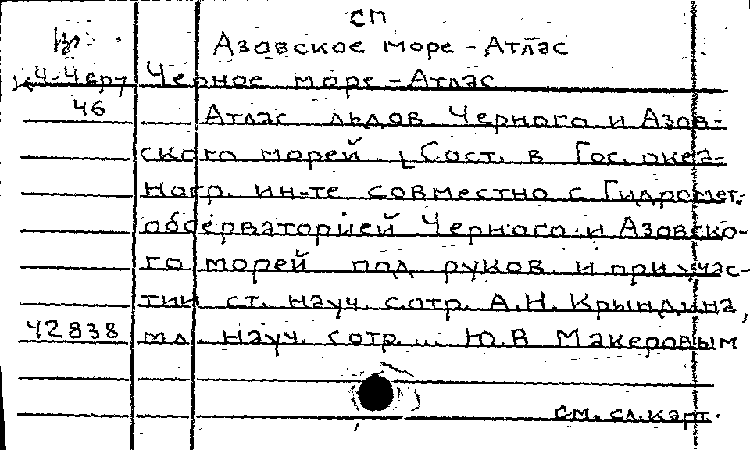 СП
Азовское море - Атлас
Черное море - Атлас
46
Атлас льдов Черного и Азов-
ского морей [Сост. в Гос. океа-
ногр. ин-те совместно с Гидромет.
обсерваторией Черного и Азовско-
го морей под руков. и при учас-
тии ст. науч. сотр. А.Н. Крындина,
42838 мл. науч. сотр... Ю.В Макеровым
см. сл. карт.